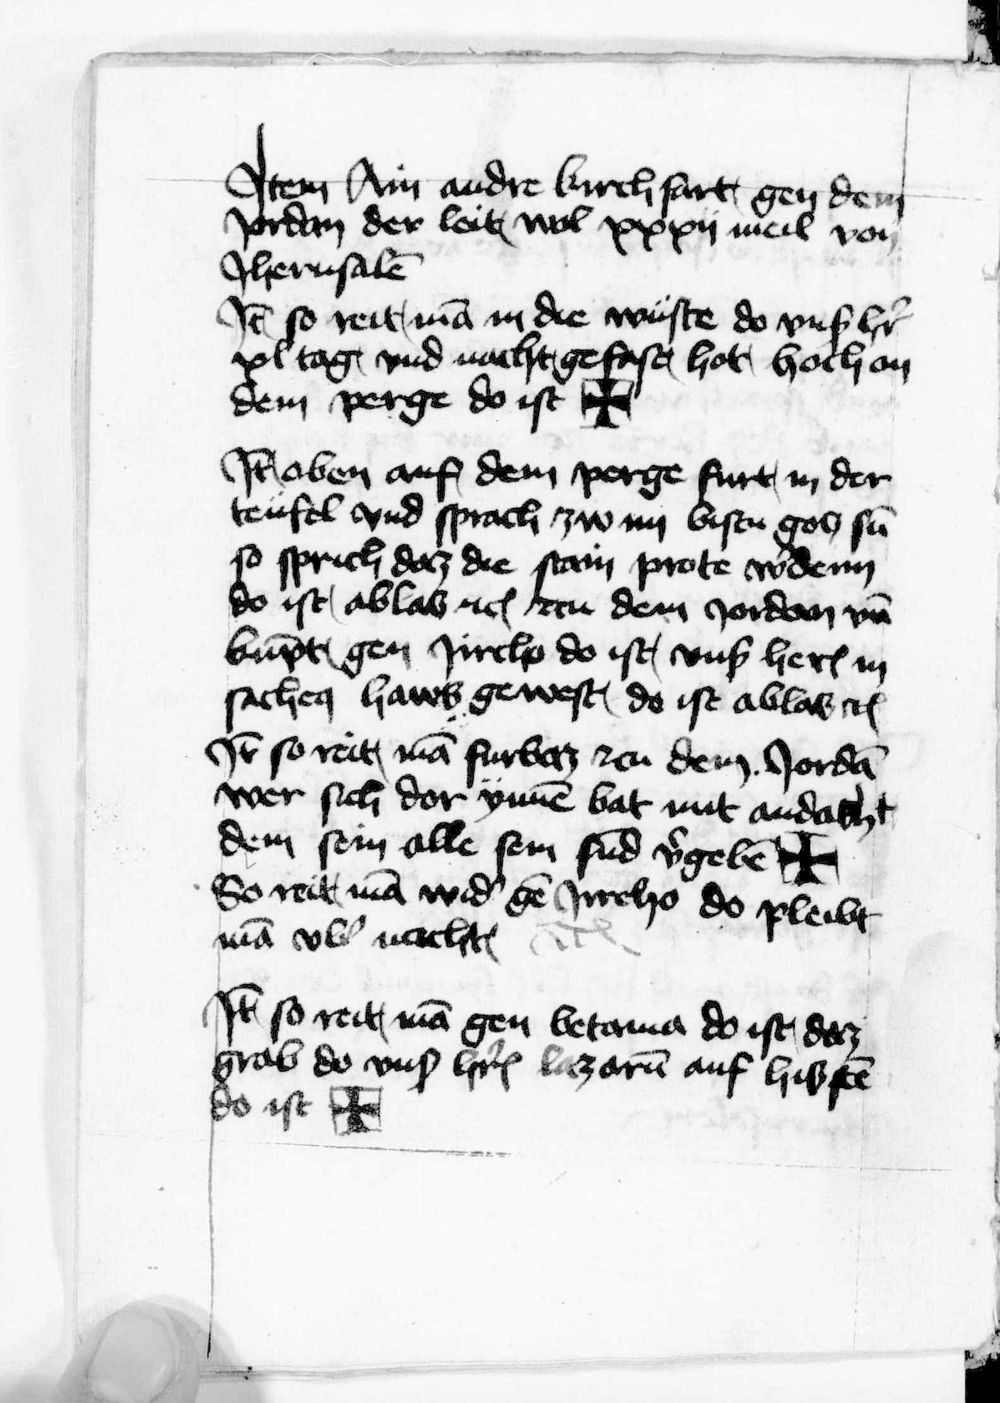 Item Ain andre kirchfart gen dem
Jordan der leit wol xxxij meil von
Jherusalē
Jt̄ so reit mā in die wüste do vnſ hr̄
xl tag vnd nacht gefast hot hoch an
dem perge do ist ✠
Jt̄ oben auf dem perge furt in der
teüfel vnd sprach zw im bistu gots sū
so sprich daz die stain prote w̄denn
do ist ablas ꝛc zcu dem Jordan vn̄
kūpt gen Jircho do ist vnſ herꝛ in
sacheꝰ haws gewest do ist ablas ꝛc
Jt̄ so reit mā furbaz zcu dem Jordā
wer sich dor ÿnnē bat mit andacht
dem sein alle sein sūd v̄gebē ✠
So reit mā wid̛ gē Jircho do pleibt
mā vb̛ nacht ꝛc
Jt̄ so reit mā gen betania do ist daz
grab do vnſ hr̄ lazarū auf hiſ stē
do ist ✠